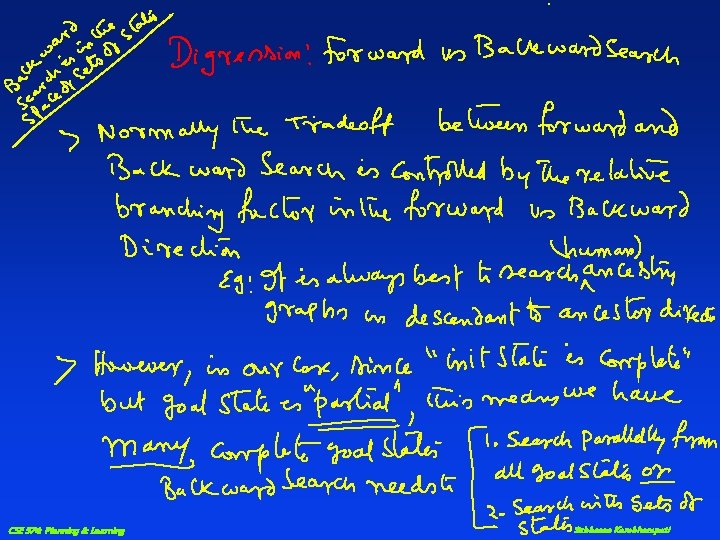 Backward
Search is in the
Space of Sets of States
Digression: Forward vs Backward Search
> Normally the Tradeoff between forward and
Backward Search is controlled by the relative
branching factor in the forward vs Backward
Direction
(human)
Eg: It is always best to search ancestry
graphs in descendant to ancestor direction
> However, in our case, since "init State is Complete"
but goal State is "partial", this means we have
Many, complete goal States
Backward Search needs to
1. Search parallelly from
all goal States or
2- Search with Sets of
States
CSE 574: Planning & Learning
Subbarao Kambhampati